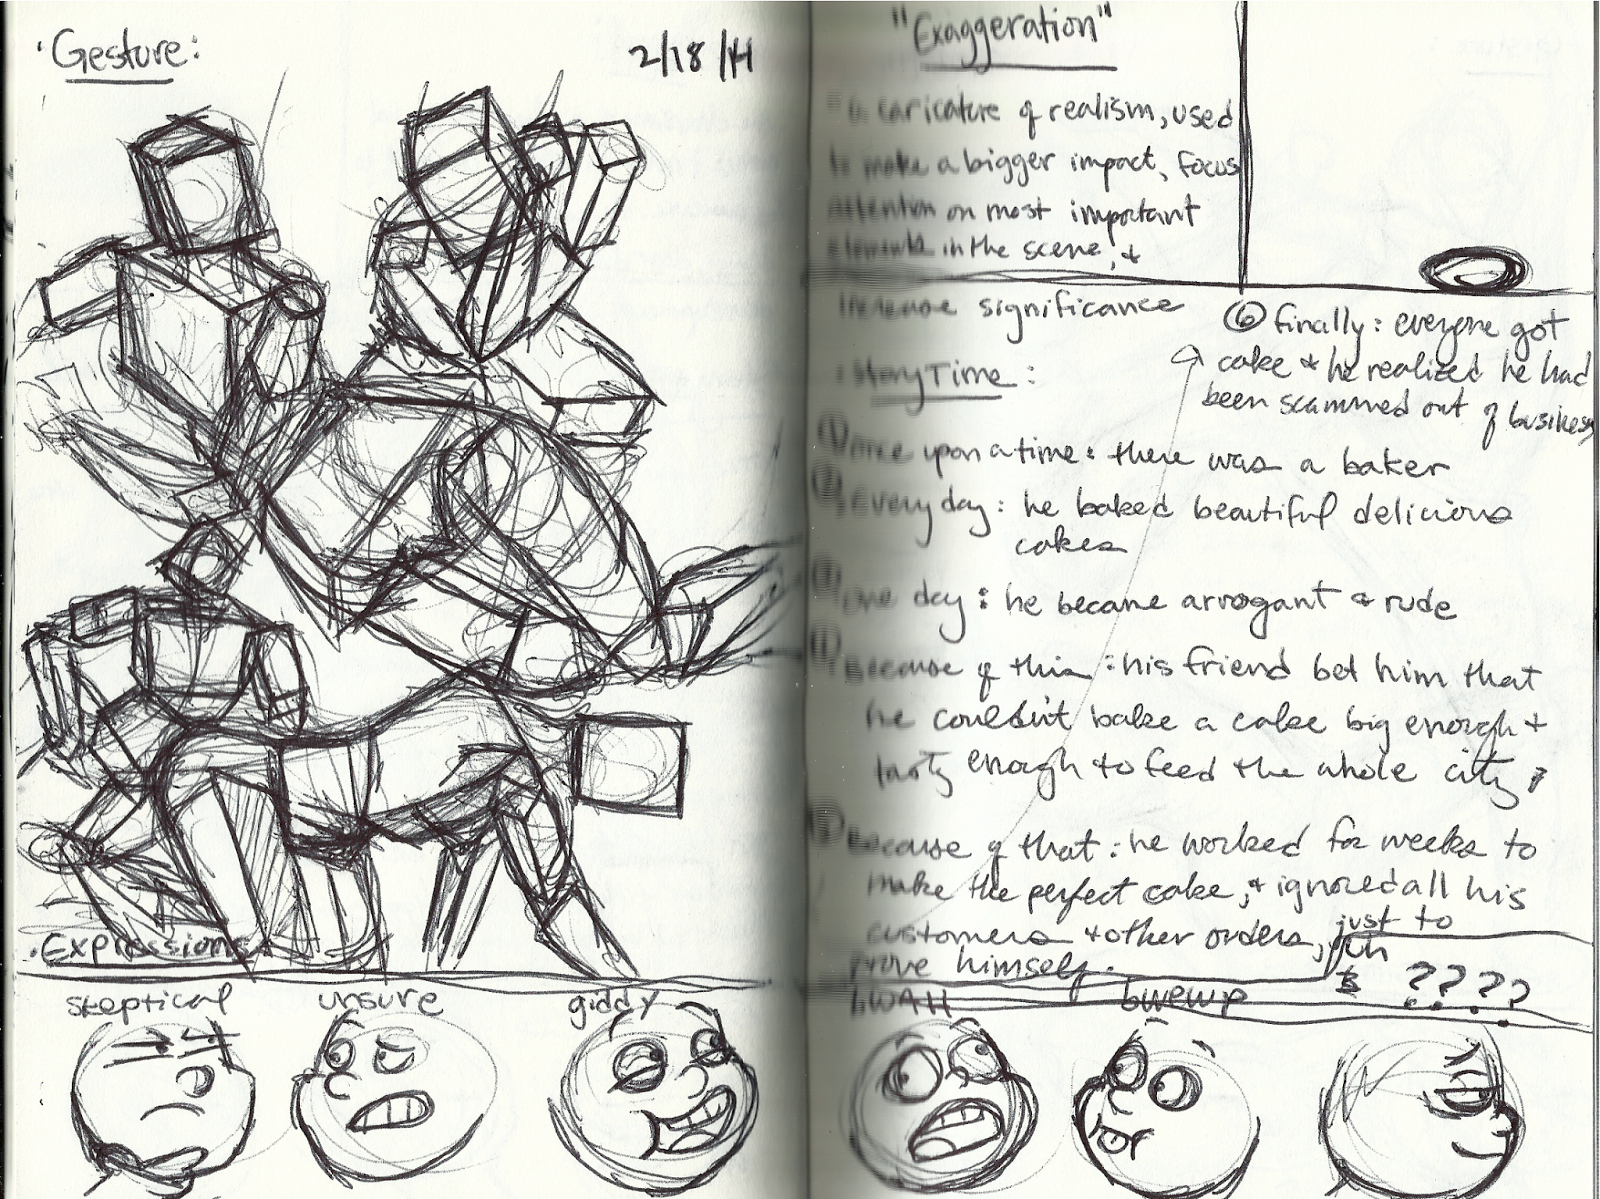 · Gesture:
2/18/14
· Expressions:
skeptical
unsure
giddy
"Exaggeration"
" a caricature of realism, used
to make a bigger impact, focus
attention on most important
elements in the scene, &
increase significance
· Story Time:
① Once upon a time: there was a baker
② Every day: he baked beautiful delicious
cakes
③ One day: he became arrogant & rude
④ Because of this: his friend bet him that
he couldn't bake a cake big enough &
tasty enough to feed the whole city,
⑤ Because of that: he worked for weeks to
make the perfect cake, & ignored all his
customers & other orders, just to
prove himself.
⑥ finally: everyone got
cake & he realized he had
been scammed out of business
BWAH
bwewp
????